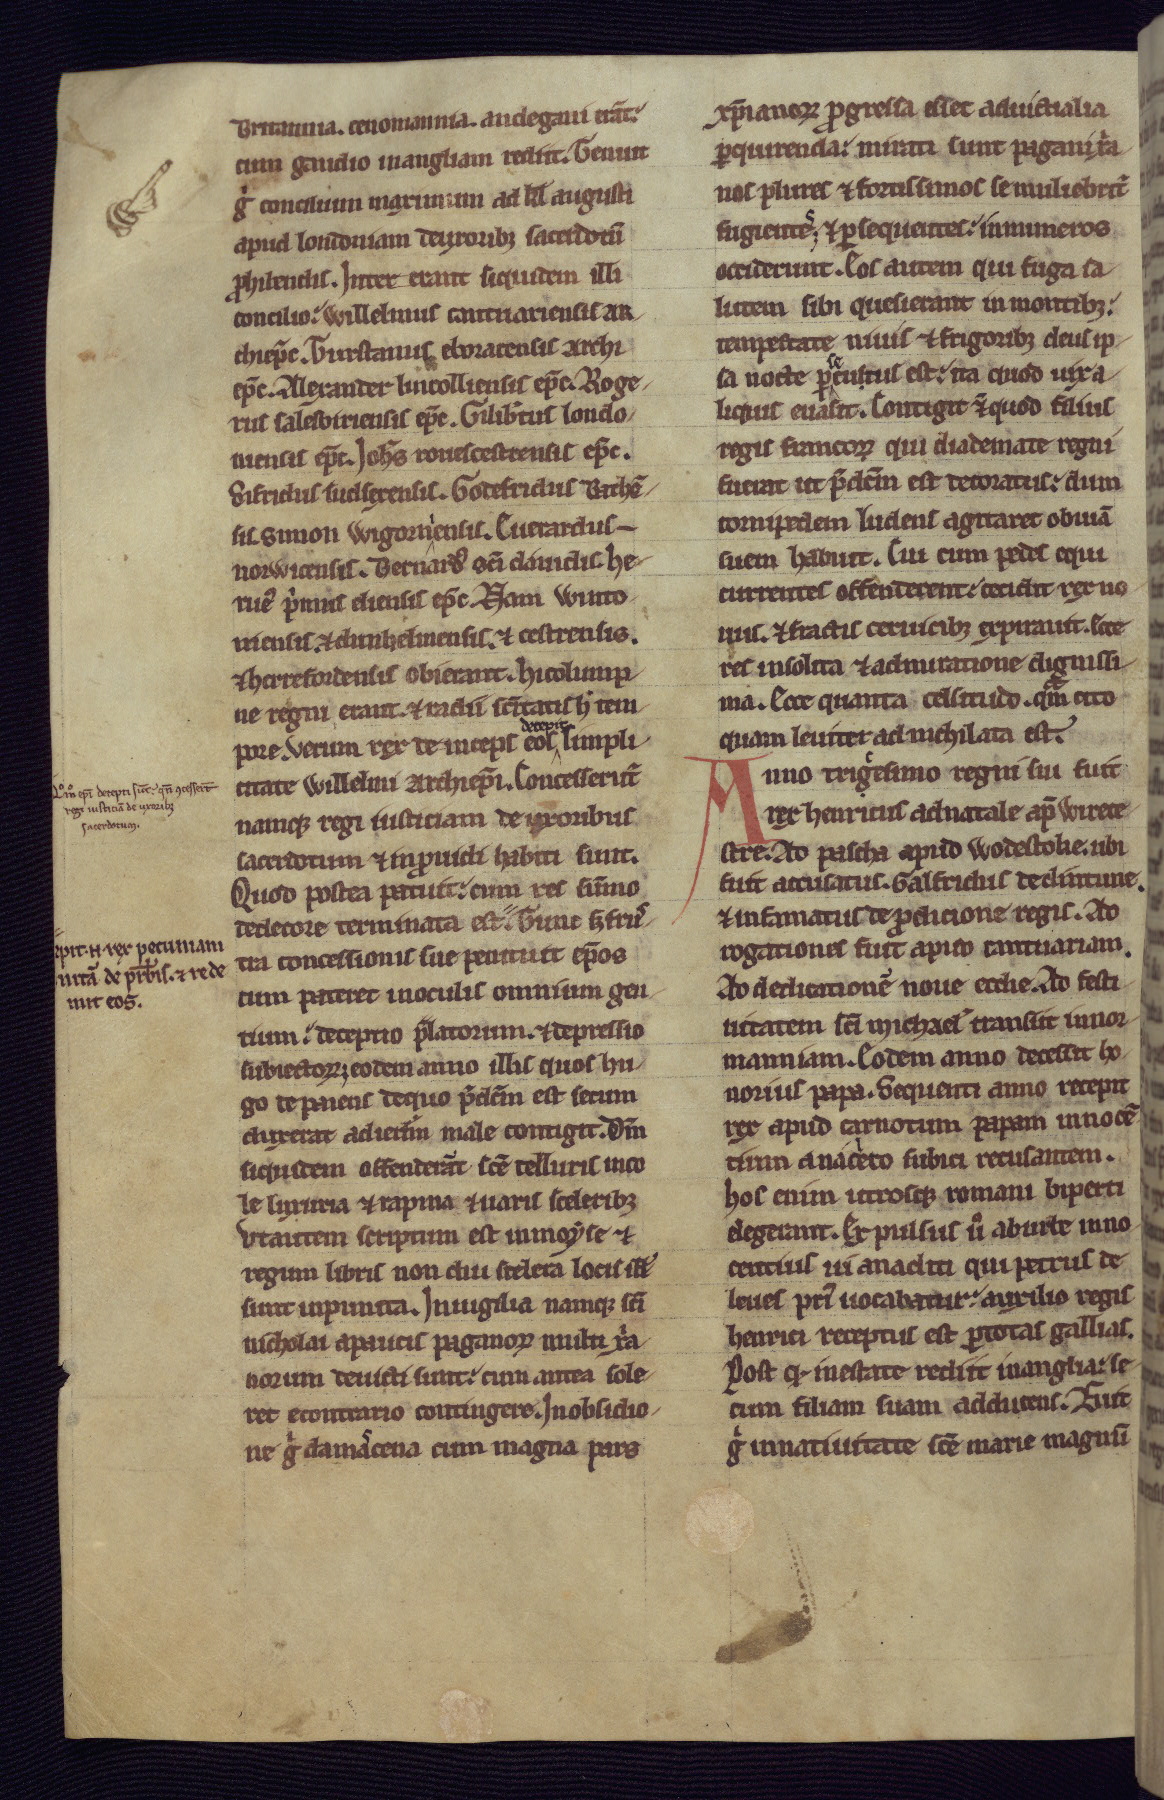 Britannia. cenomannia. andegaui erāt:
cum gaudio in angliam rediit. Tenuit
g̉ concilium maximum ad kl̄ augusti
apud londoniam de uxoribȝ sacerdotū
ꝓhibendis. Inter erant siquidem illi
concilio: Willelmus cantuariensis ar
chiep̄c. Turstanus eboracensis archi
ep̄c. Alexander lincolliensis ep̄c. Roge-
rus salesbiriensis ep̄c. Gilib̄tus londo-
niensis ep̄c. Joh̄s rouescestrensis ep̄c.
Sifridus sudsexensis. Godefridus Bathē-
sis. Simon Wigorniensis. Euerardus-
norwicensis. Bernard᷒ sc̄i dauidis. he-
rue᷒ p̉mus eliensis ep̄c. Nam winto
niensis. & dunhelmensis. & cestrensis.
& herefordensis obierant. hi colump
ne regni erant. & radii sc̄itatis h̉ tem
pore. Verum rex de inceps eos decepit simpli
citate Willelmi archiep̄i. Concesserūt
namqȝ regi iusticiam de uxoribus
sacerdotum & inꝓuidi habiti sunt.
Quod postea patuit: cum res sūmo
dedecore terminata est.
tra concessionis sue penituit ep̄os
cum pateret in oculis omnium gen
tium: deceptio p̄latorum. & depressio
subiectoꝝ; eodem anno illis quos hu-
go de paiens de quo p̄dc̄m est secum
duxerat ad ier̄lm male contigit. Dn̄m
siquidem offenderāt sc̄e telluris inco
le luxuria & rapina & uariis sceleribȝ
Vt autem scriptum est in moyse &
regum libris non diu scelera locis illis
sunt inpunita. In uigilia namqȝ sc̄i
nicholai a paucis paganoꝝ multi x̄ia
norum deuicti sunt: cum antea sole-
ret econtrario contingere. In obsidio-
ne g̉ damascena cum magna pars
Qūo ep̄i decepti sūt: qn̄ ꝯcesserūt
regi iusticiā de uxoribȝ
sacerdotum.
epit .n. rex pecuniam
nitā de p̄rbīs. & rede
mit eos.
xp̄ianoꝝ ꝓgressa esset ad uictualia
ꝑquirenda: mirati sunt pagani x̄ia
nos plures & fortissimos se muliebrit᷑
fugientes; & ꝑsequentes: innumeros
occiderunt. Eos autem qui fuga sa
lutem sibi quesierant in montibȝ:
tempestate niuis & frigoribȝ deus ip
sa nocte ꝑsecutus est: ita quod uix a
liquis euasit. Contigit & quod filius
regis francoꝝ qui diademate regni
fuerat ut p̄dc̄m est decoratus: dum
cornipedem ludens agitaret obuiā
suem habuit. Cui cum pedes equi
currentes offenderent: cecidit rex no
uus. & fractis ceruicibȝ expirauit. Ecce
res insolita & admiratione dignissi
ma. Ecce quanta celsitudo. qm̄ cito
quam leuiter adnichilata est.
Anno trigesimo regni sui fuit
rex henricus ad natale ap̄ Wirece
stre. Ad pascha apud Wodestoke. ubi
fuit accusatus. Galfridus de clintune.
& infamatus de ꝓdicione regis. Ad
rogationes fuit apud cantuariam.
Ad dedicationē noue eccl̄ie. Ad festi
uitatem sc̄i michael᷒ transiit in nor
manniam. Eodem anno decessit ho
norius papa. Sequenti anno recepit
rex apud carnotum papam innocē
tium anacleto subici recusantem.
hos enim utrosqȝ romani biperti
elegerant. Expulsus ū ab urbe inno
centius ui anacliti qui petrus de
leues pri᷒ uocabatur: auxilio regis
henrici receptus est ꝑ totas gallias.
Post q̄ in estate rediit in anglia: se
cum filiam suam adducens. Fuit
g̉ in natiuitate sc̄e marie magnū